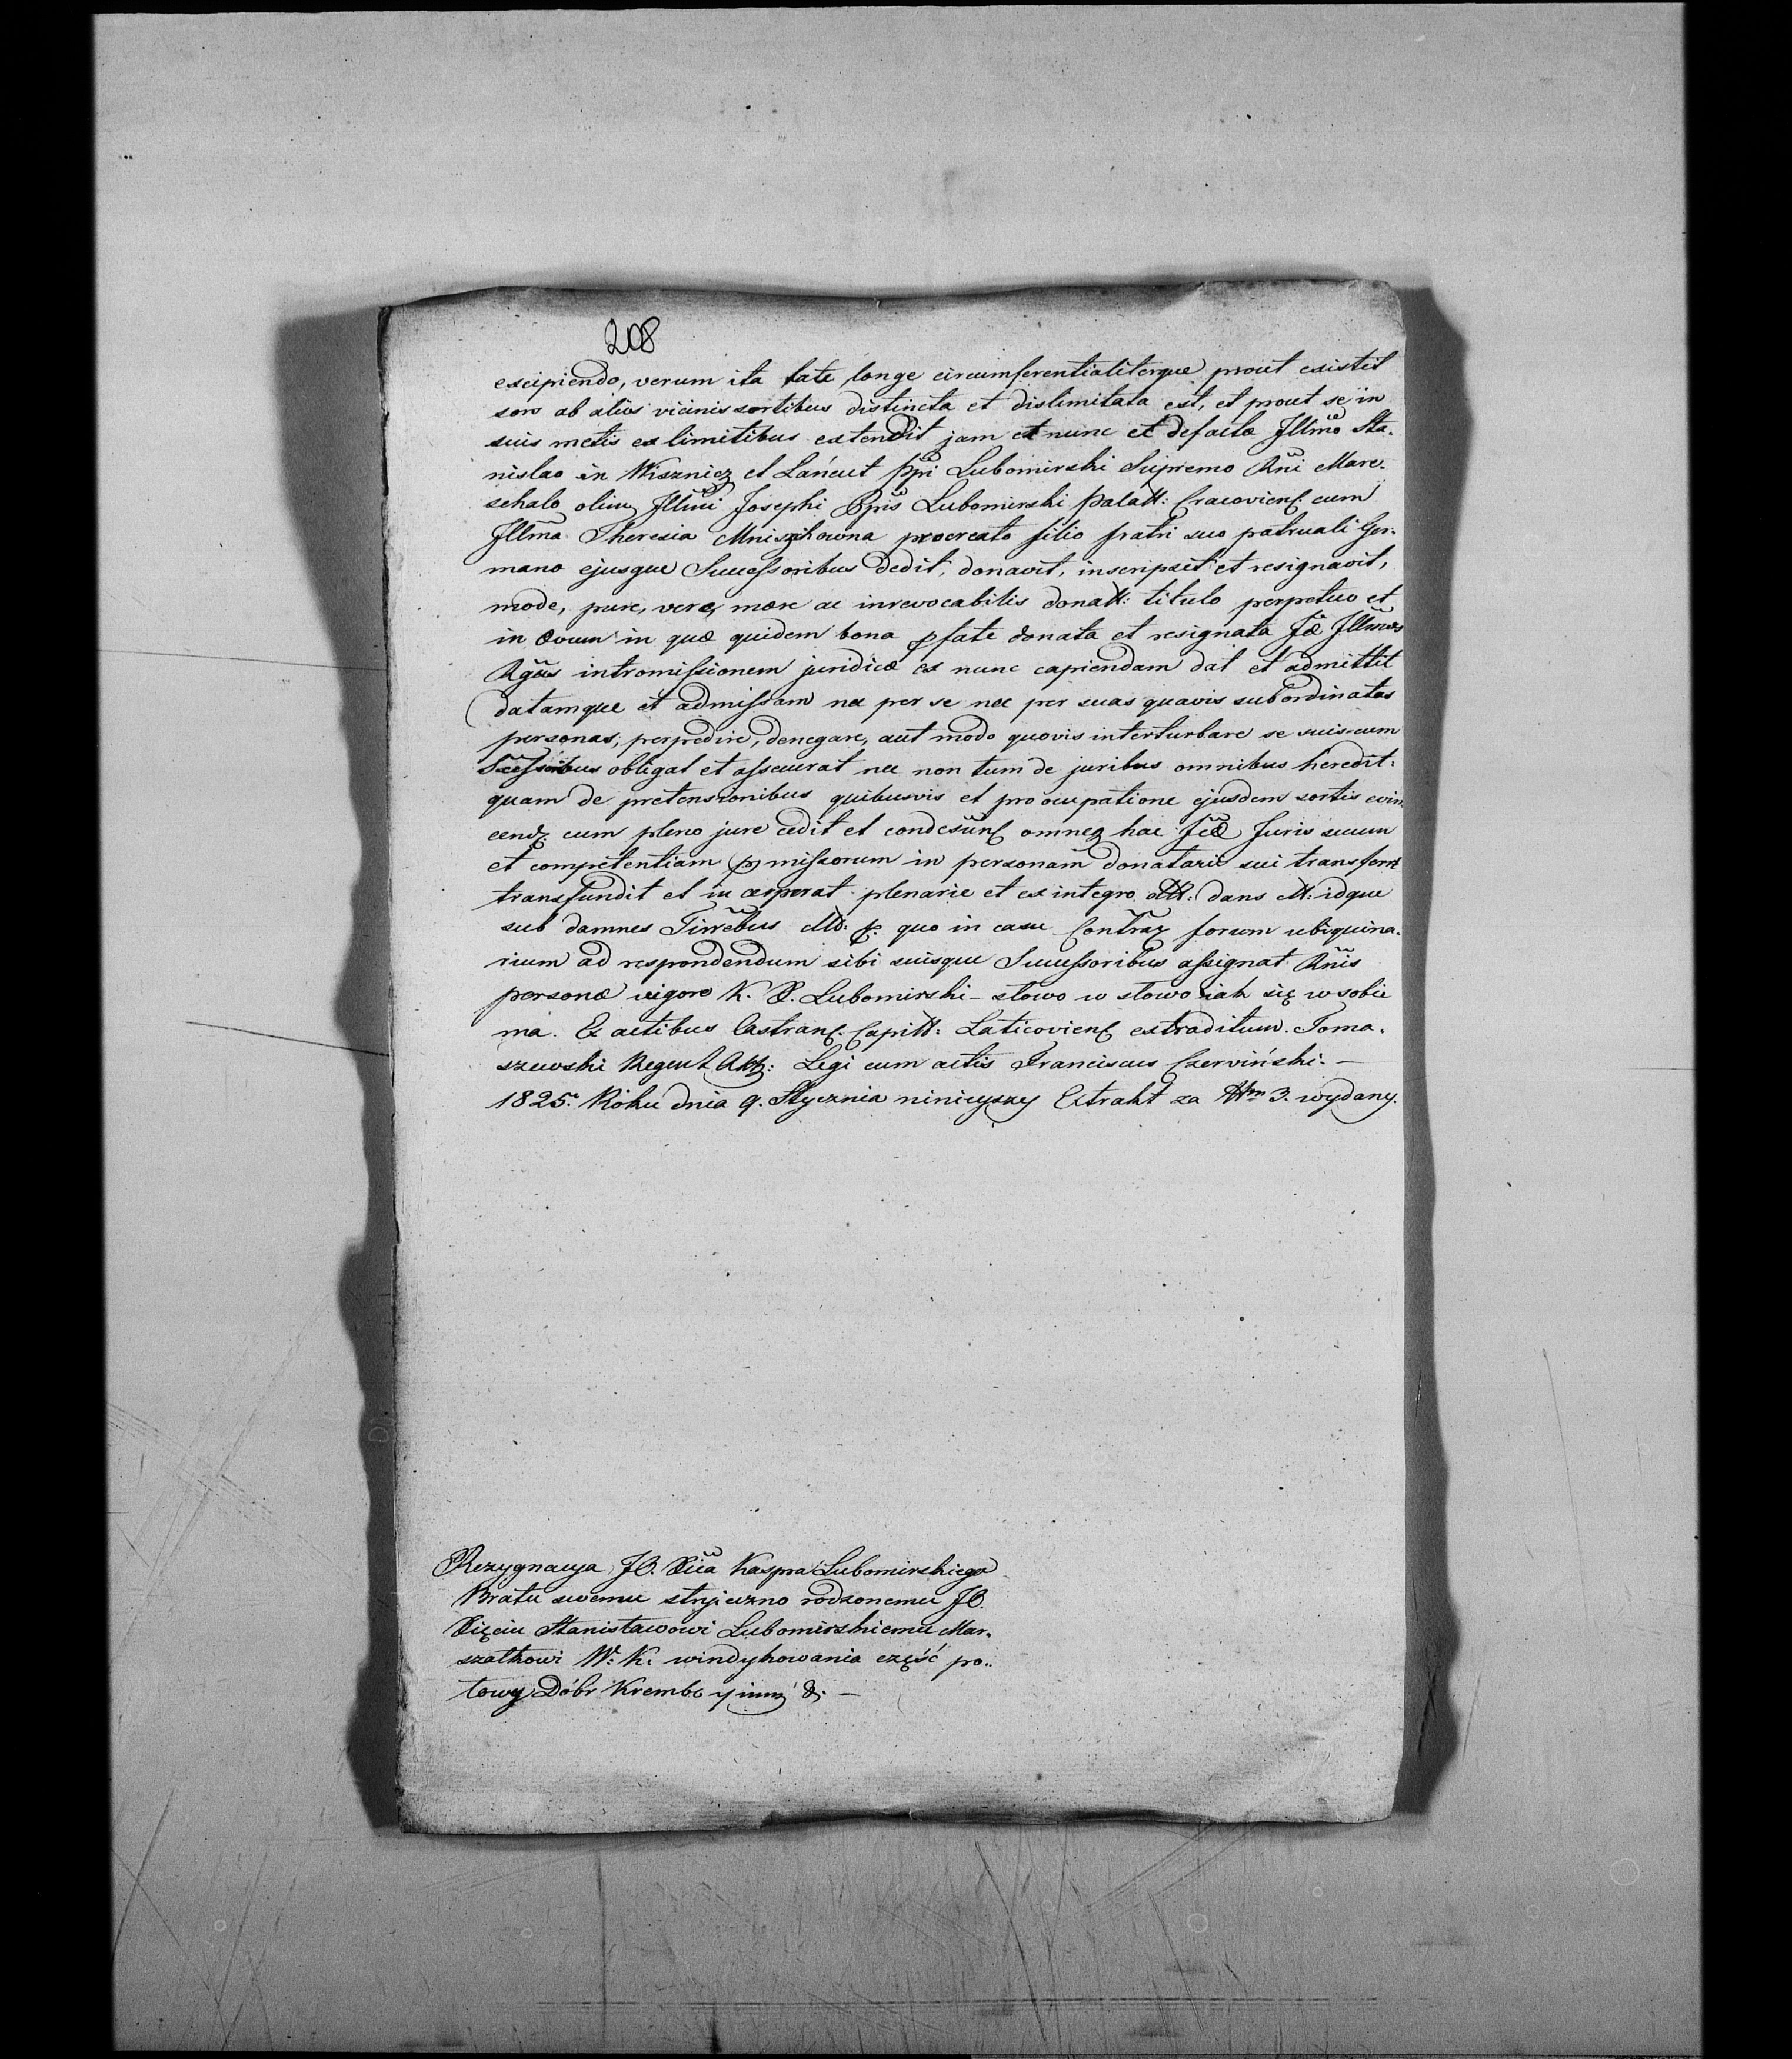 208
excipiendo, verum ita late longe circumferentialiterque prout existit
sors ab aliis vicinis sortibus distincta et dislimitata est, et prout se in
suis metis ex limitibus extendit jam et nunc et defacto Jllmo Sta-
nislao in Wisznicz et Łańcut Ppi Lubomirski Supremo Rni Mare-
schalo olim Jllmi Josephi Ppis Lubomirski Palatt: Cracovien: cum
Jllma Theresia Mniszchowna procreato filio fratri suo patruali Ger-
mano ejusque Successoribus dedit, donavit, inscripsit et resignavit,
mode, pure, vere, mere ac inrevocabilis donatt: titulo perpetuo et
in ævum in quæ quidem bona pfate donata et resignata Jllmus
Rgns intromissionem juridicæ ex nunc capiendam dat et admittit
datamque et admissam nec per se nec per suas quavis subordinatas
personas, perpedire, denegare, aut modo quovis interturbare se suis cum
Sccessoribus obligat et assecurat nec non tum de juribus omnibus heredit:
quam de pretensionibus quibusvis et pro ocupatione ejusdem sortis evin
cend: cum pleno jure cedit et omnem hac Juris suum
et competentiam pmissorum in personam donatarii sui transfert
transfundit et in corporat plenarie et ex integro dans idque
sub damnes quo in casu Contrav forum ubiquina-
rium ad respondendum sibi suisque Successoribus assignat Rnis
personæ vigore K. X. Lubomirski – słowo w słowo iak się w sobie
ma. Ex actibus Castren: Capitt: Laticovien: extraditum. Toma-
szewski Regent Legi cum actis Franciscus Czerwiński. –
1825. Roku dnia 9. Stycznia ninieyszy Extrakt za 3. wydany.
Rezygnacya JO. Xcia Kaspra Lubomirskiego
Bratu swemu stryieczno rodzonemu JO.
Xięciu Stanisławowi Lubomirskiemu Mar-
szałkowi W: K: windykowania część po-
łowy Dóbr Krembo y inny &. –